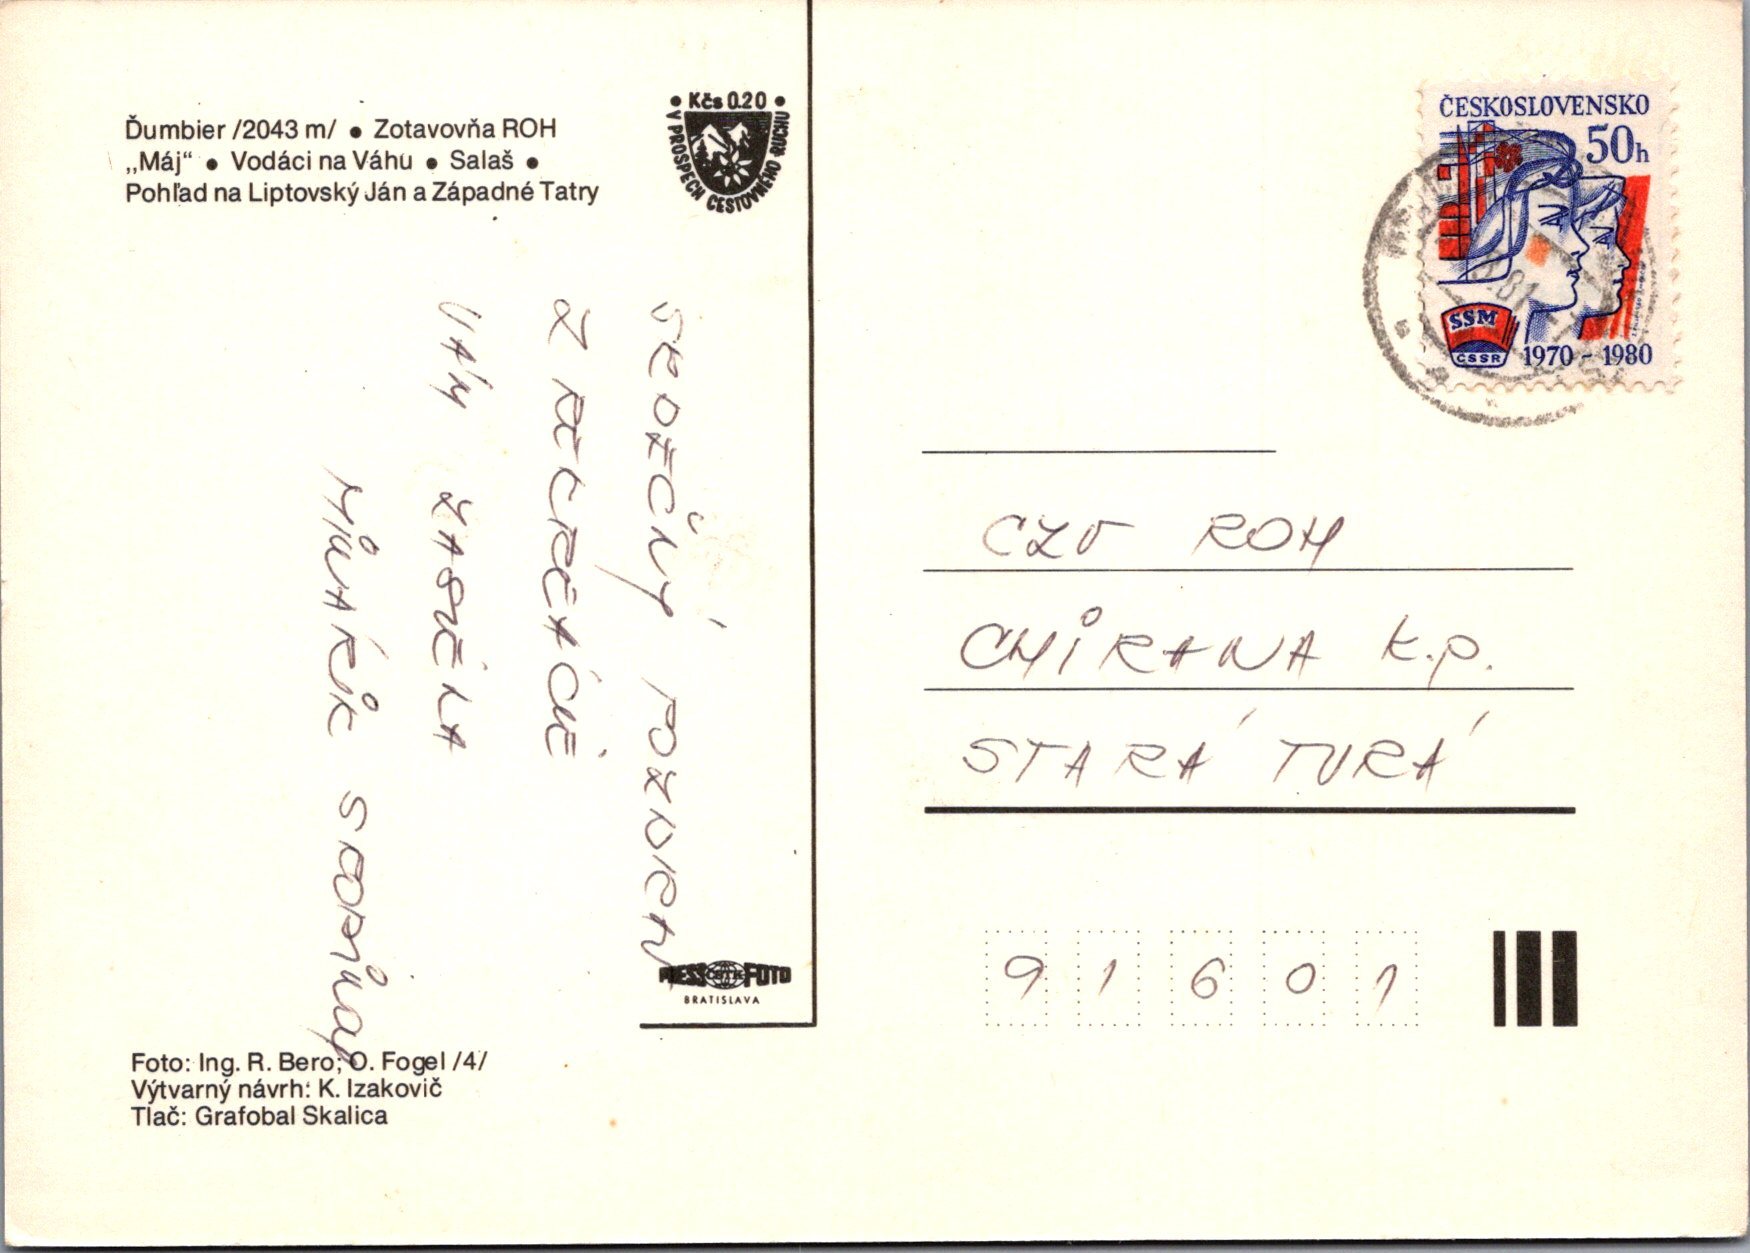 Ďumbier /2043 m/ • Zotavovňa ROH
„Máj“ • Vodáci na Váhu • Salaš •
Pohľad na Liptovský Ján a Západné Tatry
• Kčs 0.20 •
V PROSPECH CESTOVNÉHO RUCHU
SRDEČNÝ POZDRAV
Z REKREÁCIE
VÁM ZASIELA
MLINÁRIK
PRESSFOTO
BRATISLAVA
Foto: Ing. R. Bero; O. Fogel /4/
Výtvarný návrh: K. Izakovič
Tlač: Grafobal Skalica
ČESKOSLOVENSKO
50h
SSM
ČSSR
1970 - 1980
CZV ROH
CHIRANA k.p.
STARÁ TURÁ
91601